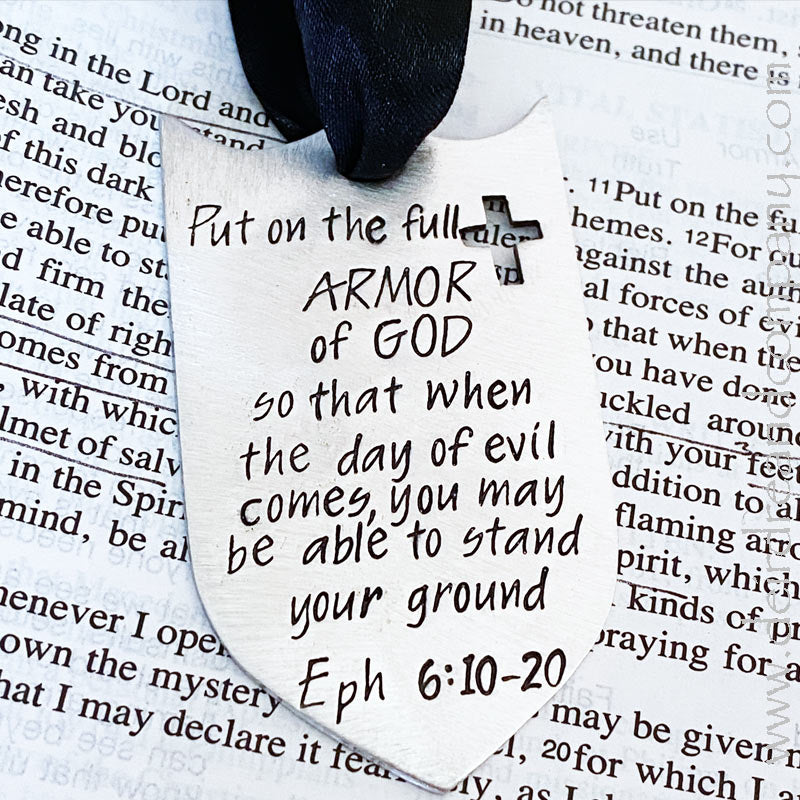 Put on the full
ARMOR
of GOD
so that when
the day of evil
comes, you may
be able to stand
your ground
Eph 6:10-20
ong in the Lord and
an take your stand
esh and blo
f this dark
herefore pu
e able to st
d firm the
late of righ
omes from
, with whic
lmet of salv
in the Spir
mind, be al
henever I ope
own the mystery
hat I may declare it fear
uler
sp
Do not threaten them,
in heaven, and there is
. 11Put on the fu
hemes. 12For ou
against the auth
al forces of evi
that when the
you have done
uckled around
with your feet
ddition to al
flaming arro
pirit, which
kinds of pr
praying for a
may be given
, 20for which I a
ly, as I
www.demdesandcompany.com